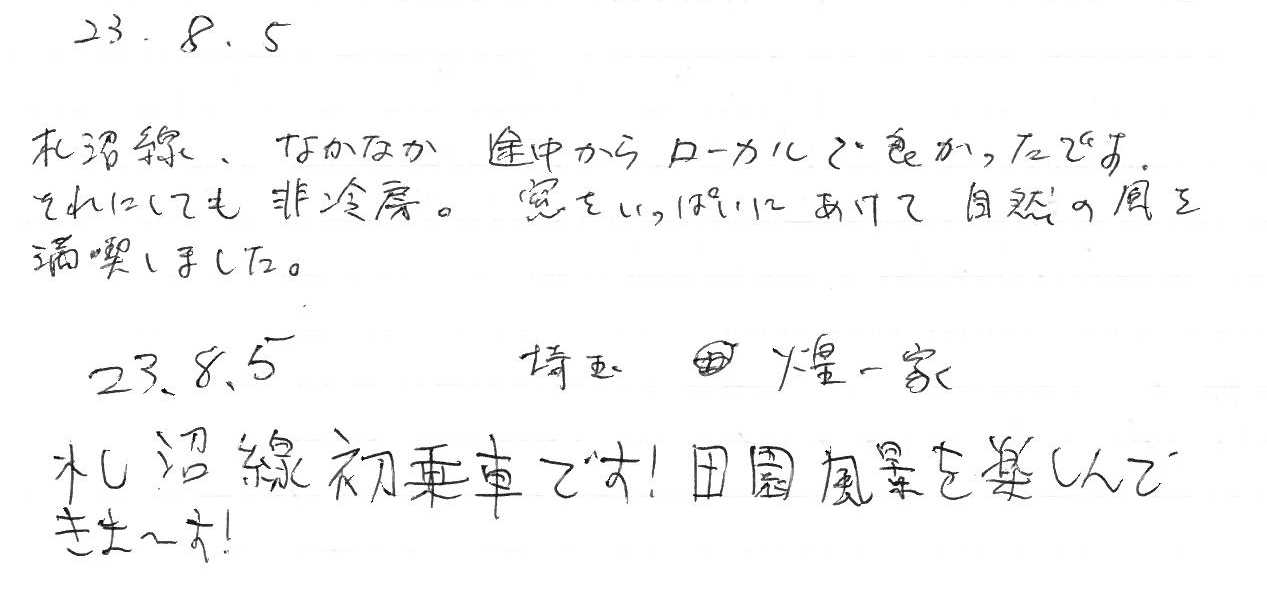 23.8.5
札沼線、なかなか 途中からローカルで良かったです.
それにしても非冷房。 窓をいっぱいにあけて自然の風を
満喫しました。
23.8.5 埼玉 煌一家
札沼線初乗車です!田園風景を楽しんで
きま〜す!